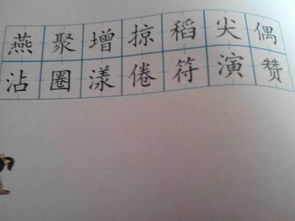 燕聚增掠稻尖偶
沾圈漾倦符演赞